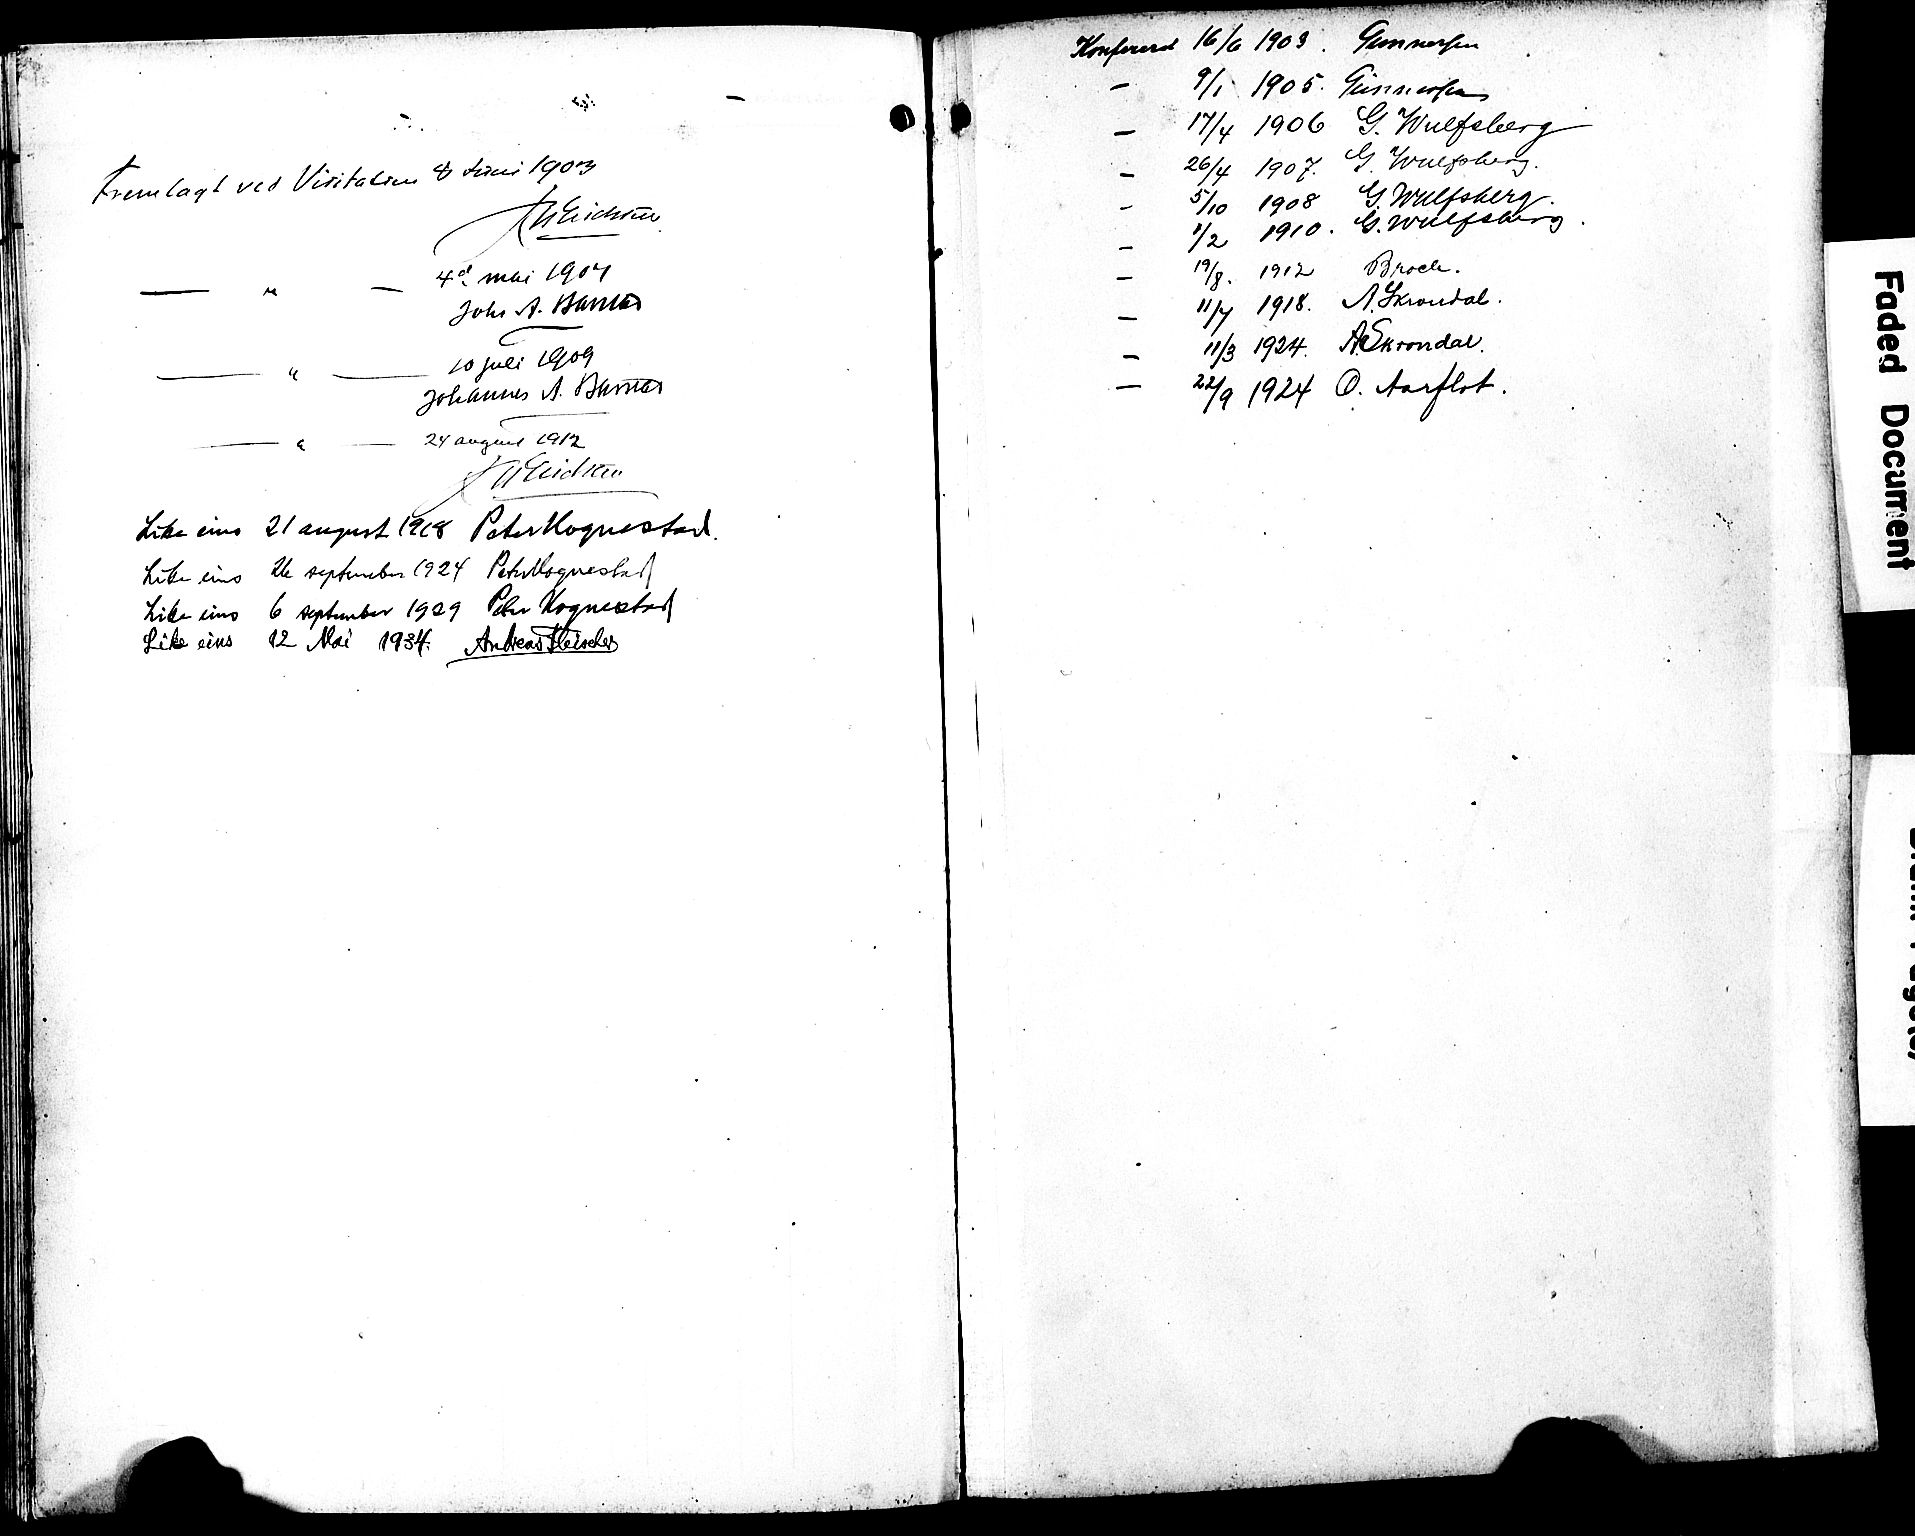 Fremlagt ved Visitatsen 8 Juni 1903
— " — 4d. mai 1907
Johs A. Barnes
— " — 10 juli 1909
Johannes A. Barnes
— " — 24 august 1912
Like eins 21 august 1918 Peter Hognestad.
Like eins 26 september 1924 Peter Hognestad
Like eins 6 september 1929 Peter Hognestad
Like eins 12 Mai 1934. Andreas Fleischer
Konfererd 16/6 1903. Gunnersen
— 9/1 1905. Gunnersen
— 17/4 1906 G. Wulfsberg
— 26/4 1907. G. Wulfsberg.
— 5/10 1908 G. Wulfsberg.
— 1/2 1910. G. Wulfsberg.
— 19/8. 1912 Broch.
— 11/7 1918. A. Skrondal.
— 11/3 1924. A. Skrondal.
— 22/9 1924 O. Aarflot.
Faded Document